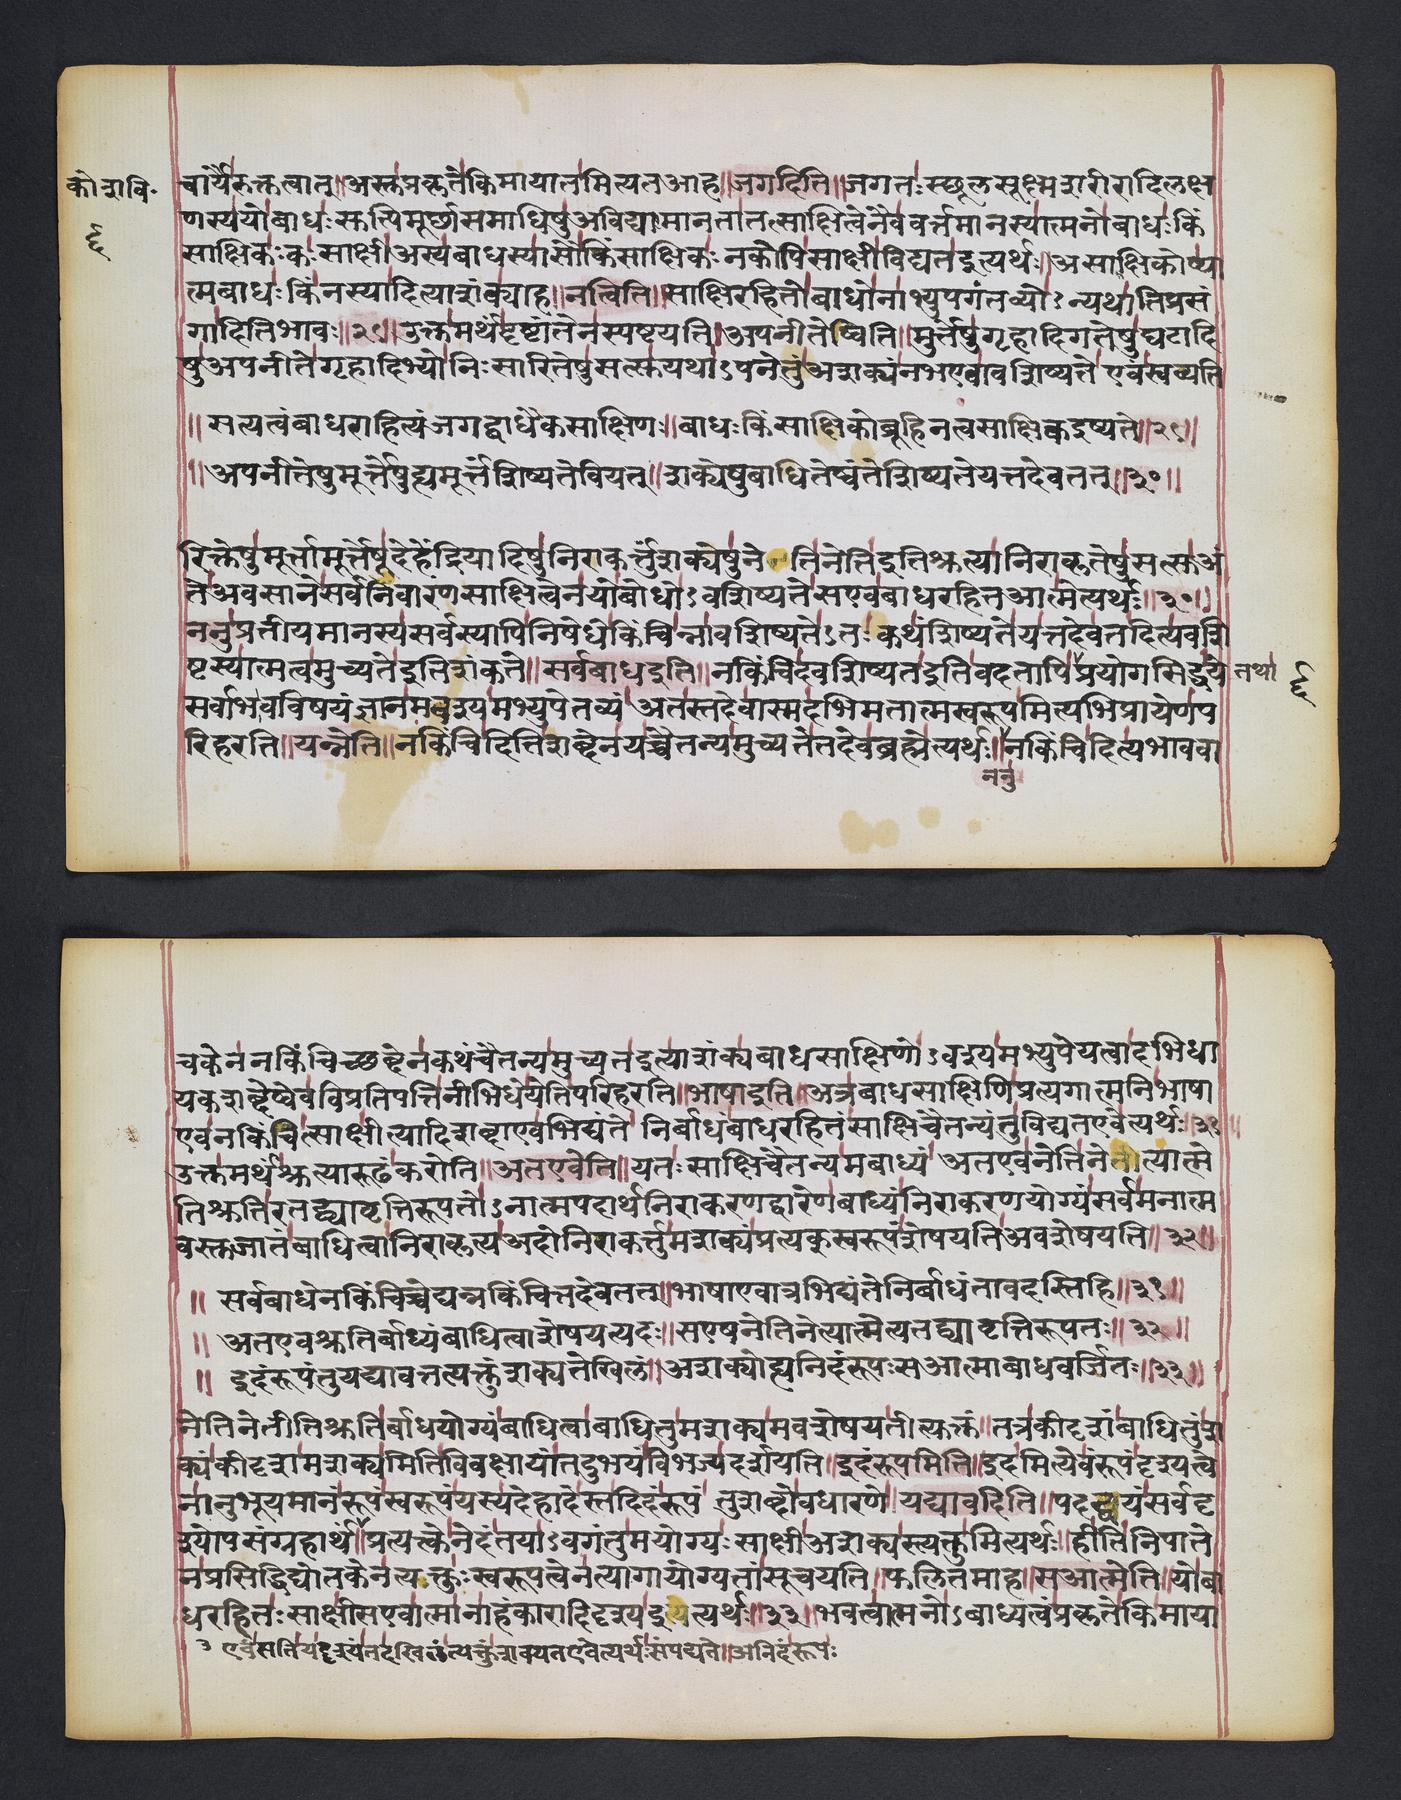 कोशवि॰
६
चार्यैरुक्तत्वात्॥अस्तुप्रकृतेकिमायातमित्यतआह॥जगदिति॥जगतःस्थूलसूक्ष्मशरीरादिलक्ष
णस्ययोबाधःसुप्तिमूर्छासमाधिषुअविद्यमानतातत्साक्षित्वेनैववर्त्तमानस्यात्मनोबाधःकिं
साक्षिकःकःसाक्षीअस्यबाधस्यासौकिंसाक्षिकः नकोपिसाक्षीविद्यतइत्यर्थः॥असाक्षिकोप्या
त्मबाधःकिंनस्यादित्याशंक्याह॥नत्विति॥साक्षिरहितोबाधोनाभ्युपगंतव्योऽन्यथातिप्रसं
गादितिभावः॥२९॥उक्तमर्थंदृष्टांतेनस्पष्टयति॥अपनीतेष्विति॥मुर्त्तेषुगृहादिगतेषुघटादि
षुअपनीतेगृहादिभ्योनिःसारितेषुसत्सुयथाऽपनेतुंअशक्यंनभएवावशिष्यते एवंस्वव्यति
॥सत्यत्वंबाधराहित्यंजगद्बाधैकसाक्षिणः॥बाधःकिंसाक्षिकोब्रूहिनत्वसाक्षिकइष्यते॥२९॥
॥अपनीतेषुमूर्त्तेषुह्यमूर्त्तंशिष्यतेवियत्॥शक्येषुबाधितेष्वंतेशिष्यतेयत्तदेवतत्॥३०॥
रिक्तेषुमूर्त्तामूर्त्तेषूदेहेंद्रियादिषुनिराकर्त्तुंशक्येषुने तिनेतिइतिश्रुत्यानिराकृतेषुसत्सुअं
तेअवसानेसर्वनिवारणसाक्षित्वेनयोबोधोऽवशिष्यतेसएवबाधरहितआत्मेत्यर्थः॥३०॥
ननुप्रतीयमानस्यसर्वस्यापिनिषेधेकिंचिन्नावशिष्यतेऽतःकथंशिष्यतेयत्तदेवतदित्यवशि
ष्टस्यात्मत्वमुच्यतेइतिशंकते॥सर्वबाधइति॥नकिंचिदवशिष्यतइतिवदतापिप्रयोगसिद्धये तथा ६
सर्वाभावविषयंज्ञानमवश्यमभ्युपेतव्यं अतस्तदेवास्मदभिमतात्मस्वरूपमित्यभिप्रायेणप
रिहरति॥यन्नेति॥नकिंचिदितिशब्देनयच्चैतन्यमुच्यतेतदेवब्रह्मेत्यर्थः॥नकिंचिदित्यभाववा
ननु
चकेननकिंचिच्छब्देनकथंचैतन्यमुच्यतइत्याशंक्यबाधसाक्षिणोऽवश्यमभ्युपेयत्वादभिधा
यकशब्देष्वेवविप्रतिपत्तिर्नाभिधेयेतिपरिहरति॥भाषाइति॥अत्रबाधसाक्षिणिप्रत्यगात्मनिभाषा
एवनकिंचित्साक्षीत्यादिशब्दाएवभिद्यंते निर्बाधंबाधरहितंसाक्षिचैतन्यंतुविद्यतएवेत्यर्थः॥३१॥
उक्तमर्थंश्रुत्यारूढंकरोति॥अतएवेति॥यतःसाक्षिचैतन्यमबाध्यं अतएवनेतिनेतीत्यात्मे
तिश्रुतिरतद्व्यावृत्तिरूपतोऽनात्मपदार्थनिराकरणद्वारेणबाध्यंनिराकरणयोग्यंसर्वमनात्म
वस्तुजातंबाधित्वानिराकृत्य अदोनिराकर्त्तुमशक्यंप्रत्यक्स्वरूपंशेषयतिअवशेषयति॥३२॥
॥ सर्वबाधेनकिंचिच्चेद्यन्नकिंचित्तदेवतत्॥भाषाएवात्रभिद्यंतेनिर्बाधंतावदस्तिहि॥३१॥
॥ अतएवश्रुतिर्बाध्यंबाधित्वाशेषयत्यदः॥सएषनेतिनेत्यात्मेत्यतद्व्यावृत्तिरूपतः॥३२॥
॥ इदंरूपंतुयद्यावत्तत्त्यक्तुंशक्यतेखिलं॥अशक्योह्यनिदंरूपःसआत्माबाधवर्जितः॥३३॥
नेतिनेतीतिश्रुतिर्बाधयोग्यंबाधित्वाबाधितुमशक्यमवशेषयतीत्युक्तं॥तत्रकीदृशंबाधितुंश
क्यंकीदृशमशक्यमितिविवक्षायांतदुभयंविभज्यदर्शयति॥इदंरूपमिति॥इदमित्येवंरूपंदृश्यत्वे
नानुभूयमानंरूपंस्वरूपंयस्यदेहादेस्तदिदंरूपं तुशब्दोवधारणे॥यद्यावदिति॥पदद्वयंसर्वदृ
श्योपसंग्रहार्थं॥प्रत्यत्क्वेनेदंतयाऽवगंतुमयोग्यःसाक्षीअशक्यस्त्यक्तुमित्यर्थः॥हीतिनिपाते
नप्रसिद्धिद्योतकेनत्यक्तुःस्वरूपत्वेनत्यागायोग्यतांसूचयति॥फलितमाह॥सआत्मेति॥योबा
धरहितःसाक्षीसएवात्मानाहंकारादिदृश्यइत्यर्थः॥३३॥भवत्वात्मनोऽबाध्यत्वंप्रकृतेकिमाया
३ एवंसतियद्दृश्यंतदखिलंत्यक्तुंशक्यतएवेत्यर्थःसंपद्यते॥अनिदंरूपः